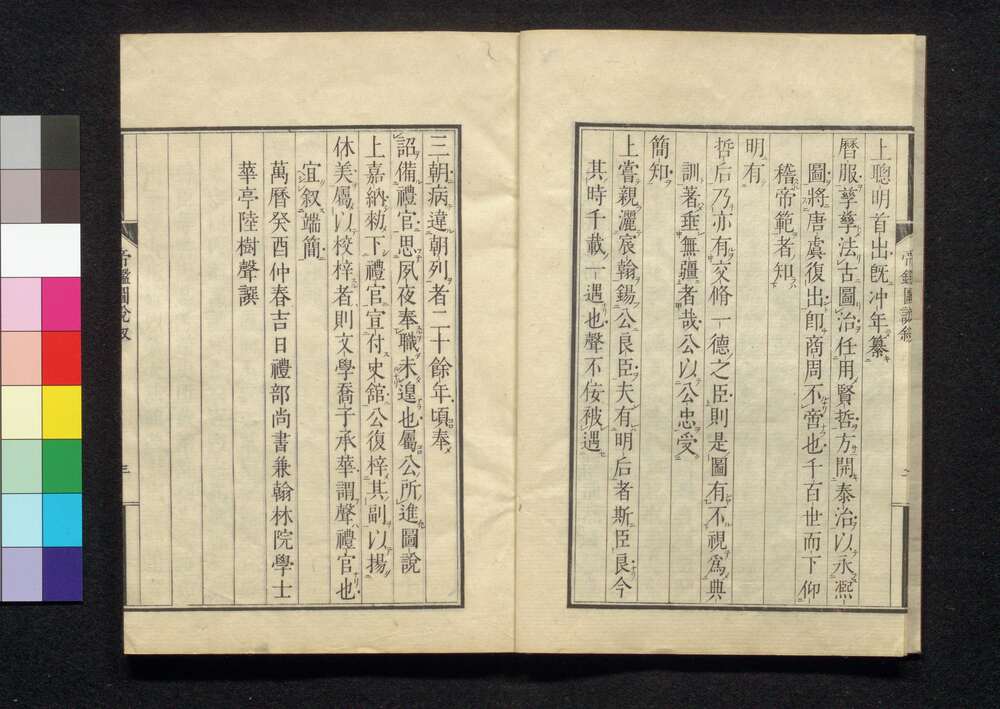 上聰明首出既冲年纂
曆服孳孳法古圖治任用賢哲方開泰治以永熙
圖將唐虞復出卽商周不啻也千百世而下仰
稽帝範者知
明有
哲后乃亦有交脩一德之臣則是圖有不視爲典
訓著垂無疆者哉公以公忠受
簡知
上嘗親灑宸翰錫公良臣夫有明后者斯臣良今
其時千載一遇也聲不佞被遇
帝鑑圖說叙
二
三朝病違朝列者二十餘年頃奉
詔備禮官思夙夜奉職未遑也屬公所進圖說
上嘉納勑下禮官宣付史舘公復梓其副以揚
休美屬以校梓者則文學喬子承華謂聲禮官也
宜叙端簡
萬曆癸酉仲春吉日禮部尚書兼翰林院學士
華亭陸樹聲譔
帝鑑圖說叙
三